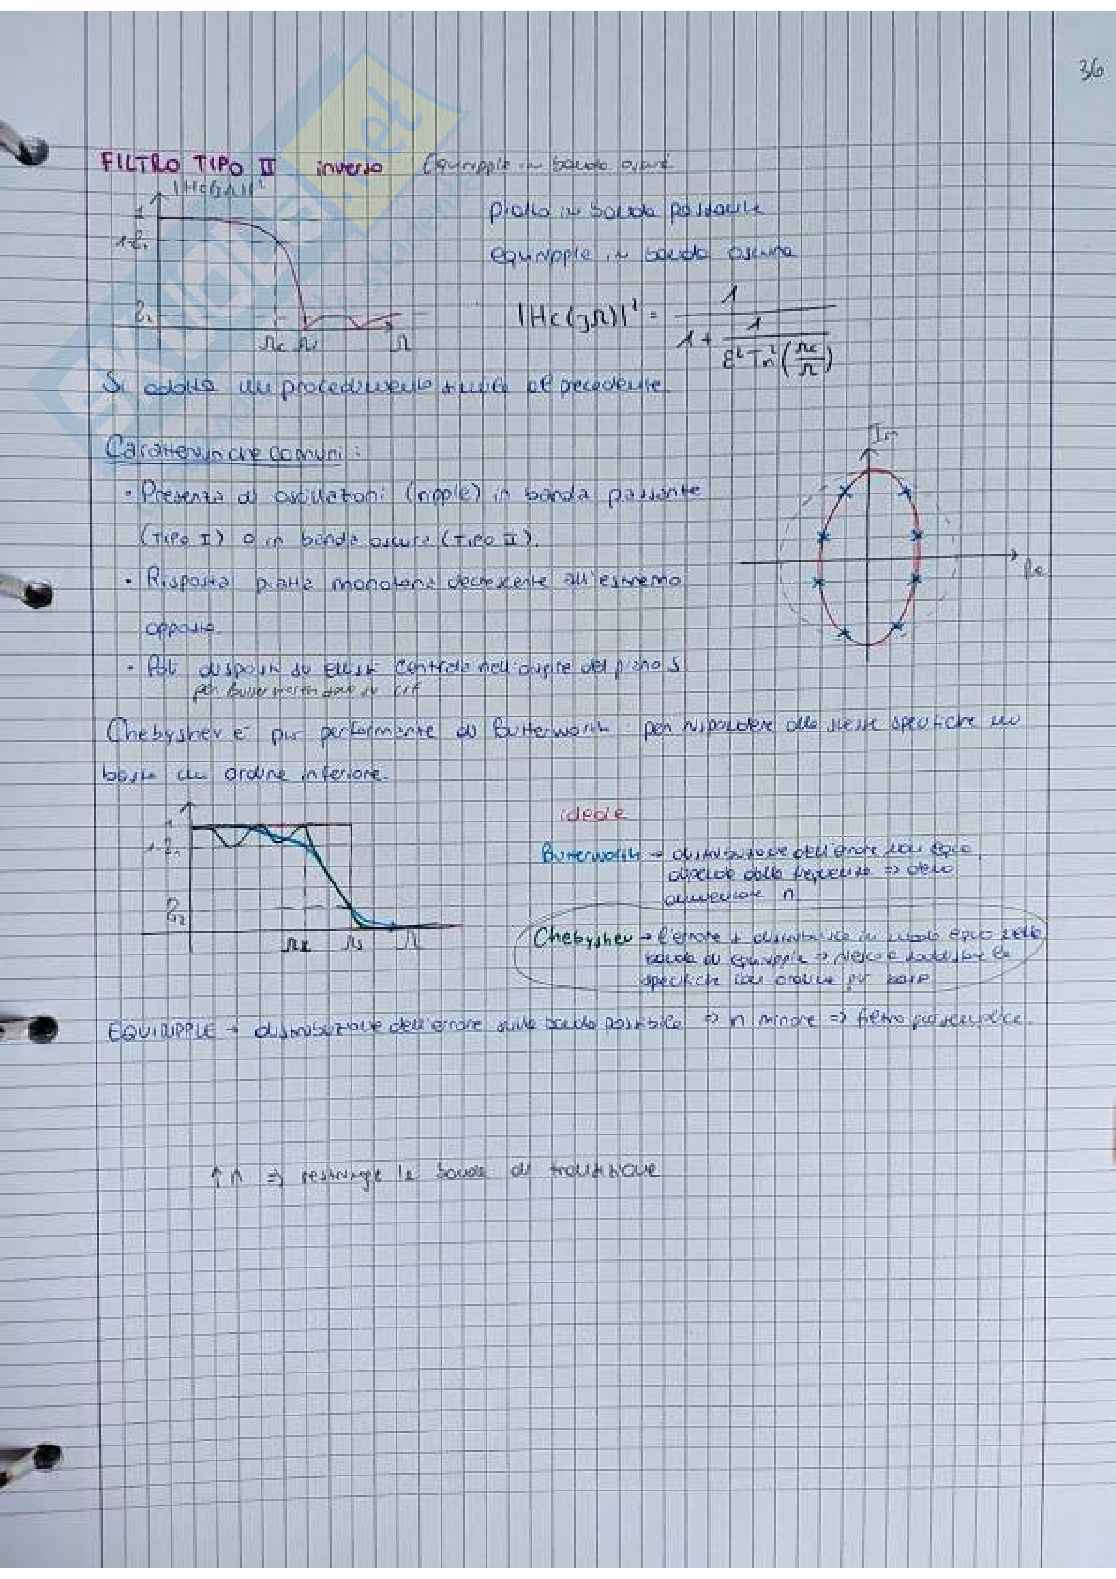 36
FILTRO TIPO II inverso Equiripple in banda oscura
|Hc(jΩ)|²
1
piatto in banda passante
1-δ₁
equiripple in banda oscura
|Hc(jΩ)|² = 1 / (1 + 1 / (ε² Tn² (Ωc/Ω)))
δ₂
Ωc Ωs Ω
Si adotta un procedimento simile al precedente.
Caratteristiche comuni:
Im
• Presenza di oscillazioni (ripple) in banda passante
(TIPO I) o in banda oscura (TIPO II).
• Risposta piatta monotona decrescente all'estremo
Re
opposto.
• Poli disposti su ellisse centrata nell'origine del piano S
per Butterworth sono su crf
Chebyshev è più performante di Butterworth: per rispondere alle stesse specifiche mi
basta un ordine inferiore.
1
ideale
1-δ₁
Butterworth → distribuzione dell'errore non equa,
dipende dalla frequenza ⇒ devo
aumentare n
δ₂
Chebyshev → l'errore si distribuisce in modo equo nella
Ωc Ωs Ω
banda di equiripple ⇒ riesco a soddisfare le
specifiche con ordine più basso
EQUIRIPPLE → distribuzione dell'errore sulla banda possibile ⇒ n minore ⇒ filtro più semplice.
↑ n ⇒ restringe la banda di transizione